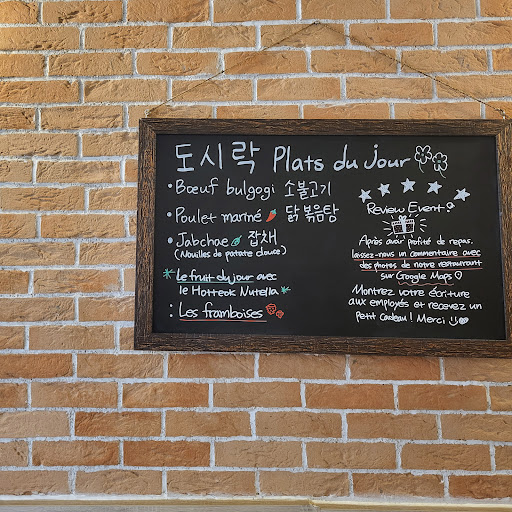 도시락 Plats du jour
• Bœuf bulgogi 소불고기
• Poulet mariné 닭볶음탕
• Jabchae 잡채
(Nouilles de patate douce)
* Le fruit du jour avec
le Hotteok Nutella *
: Les framboises
Review Event?
Après avoir profité de repas,
laissez-nous un commentaire avec
des photos de notre restaurant
sur Google Maps ♡
Montrez votre écriture
aux employés et recevez un
petit cadeau! Merci